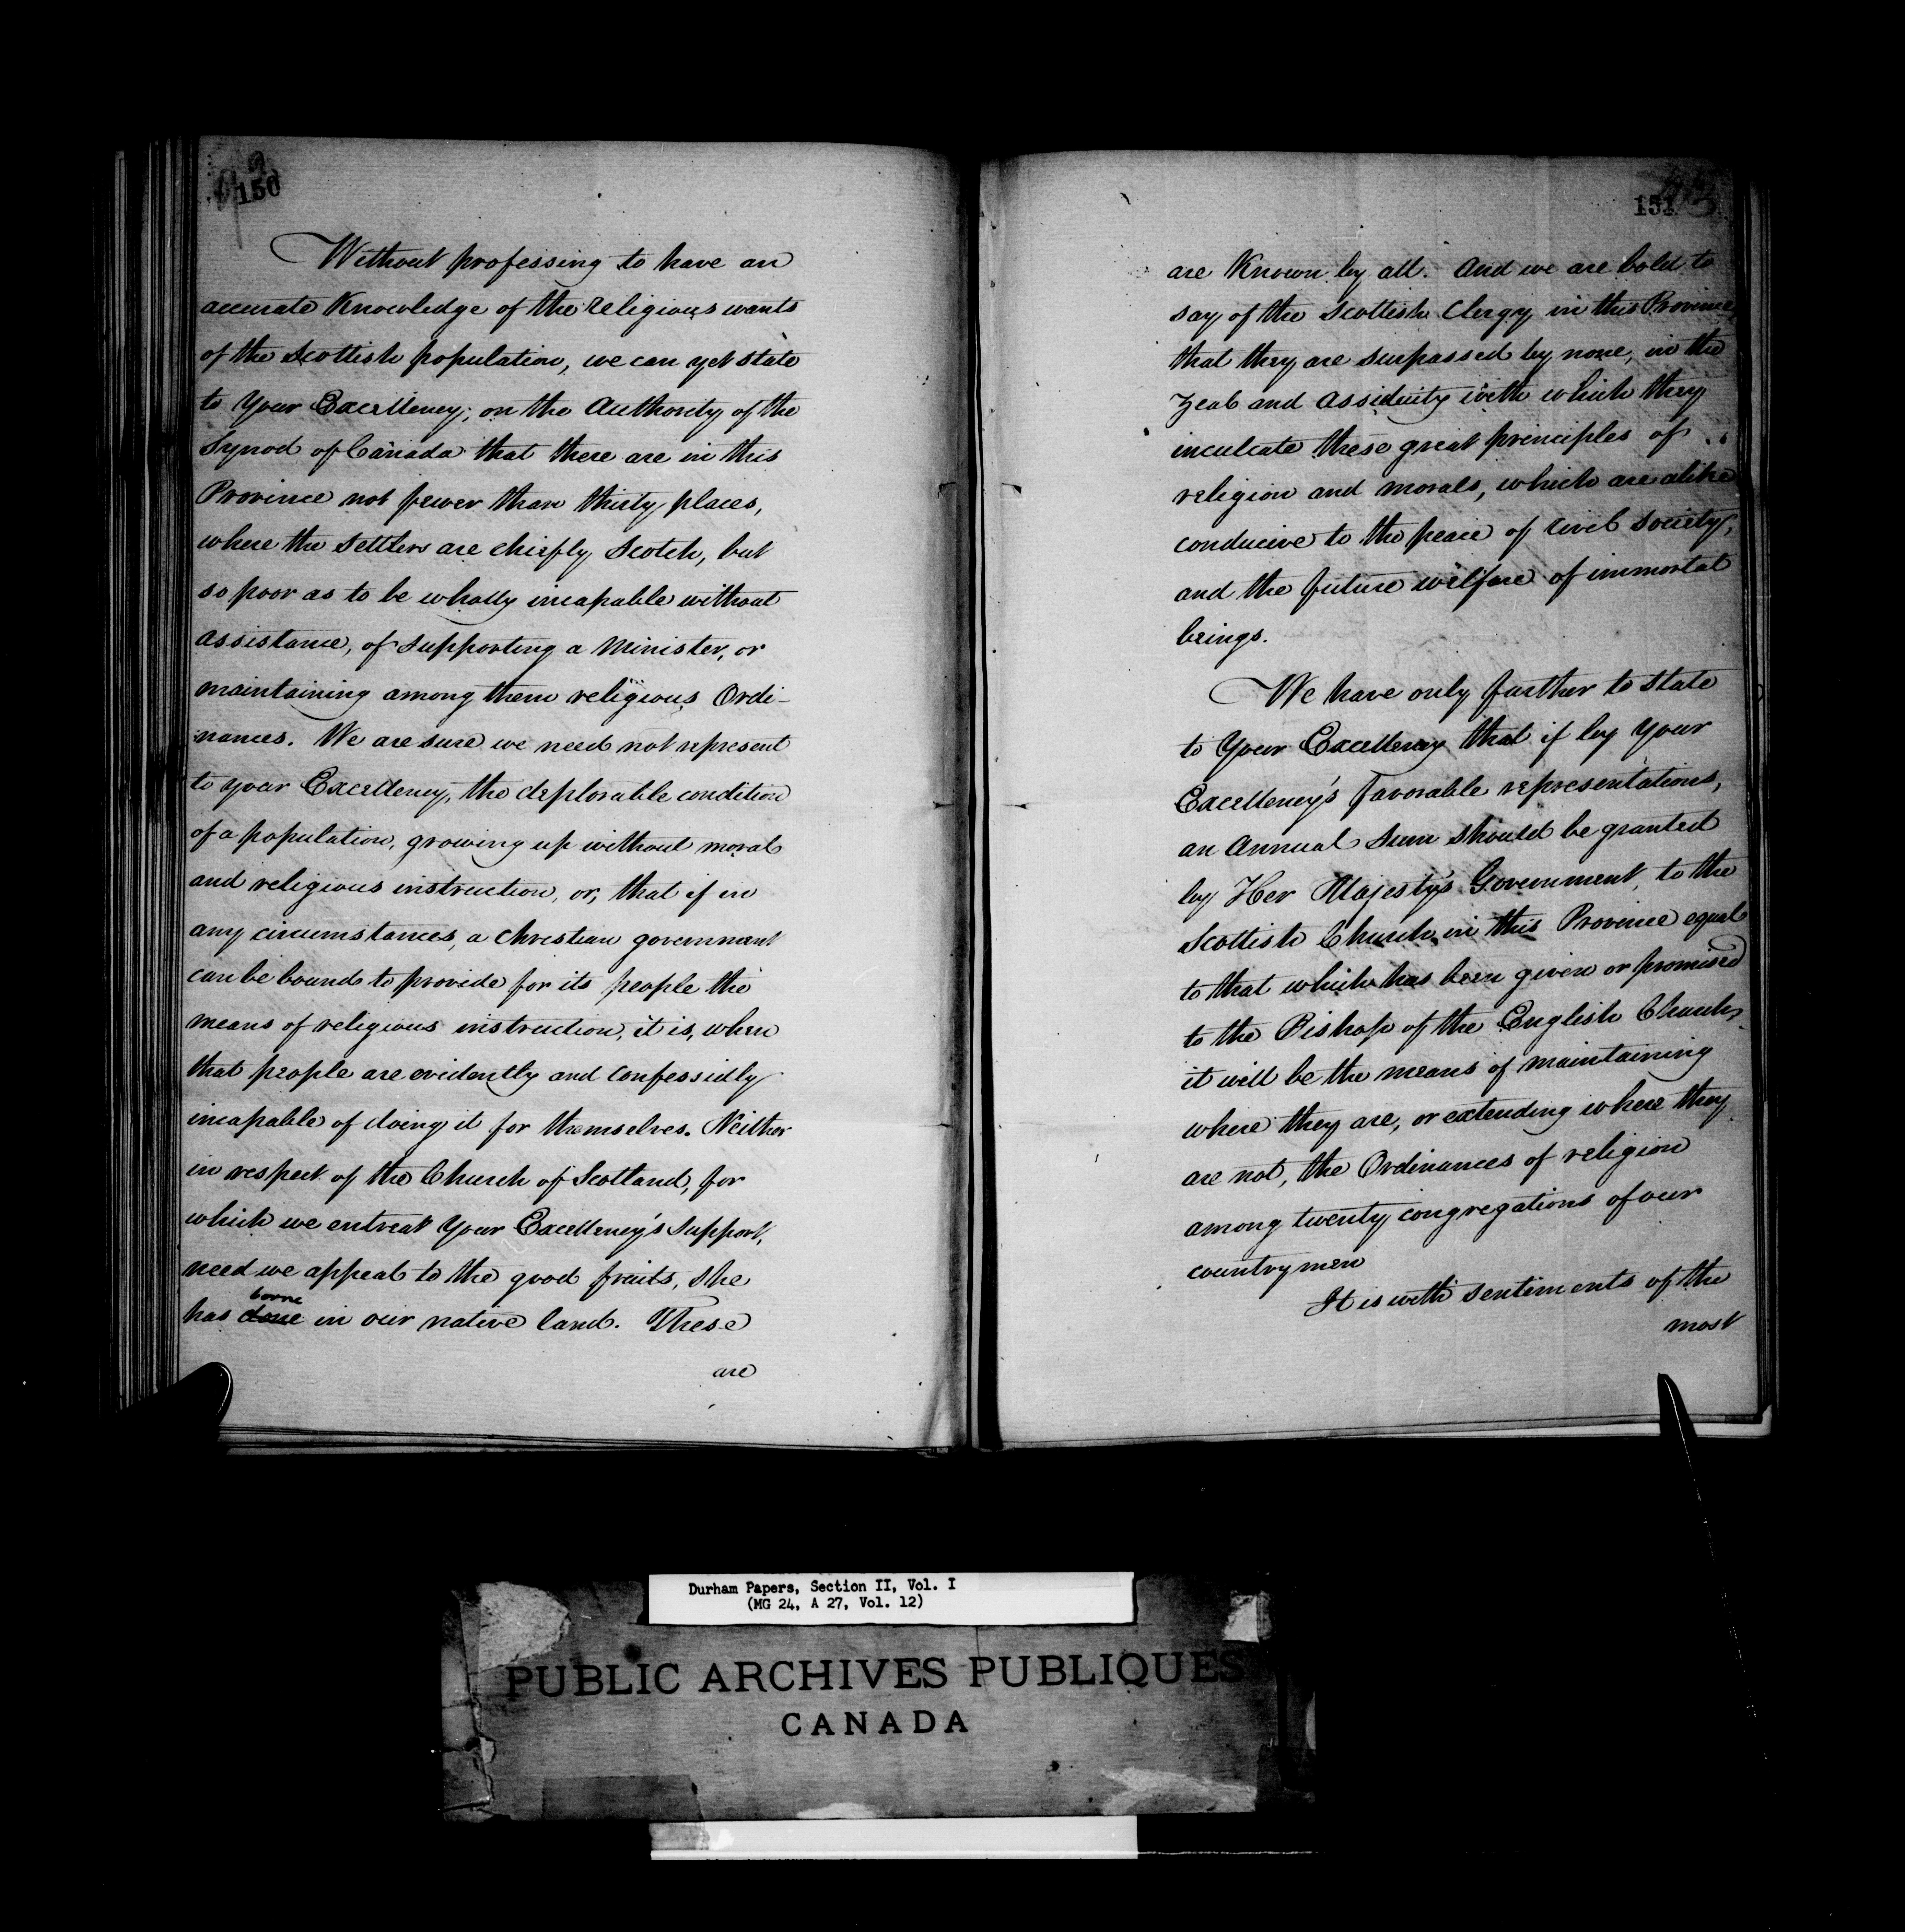 150
Without professing to have an
accurate Knowledge of the religious wants
of the Scottish population, we can yet state
to Your Excellency, on the Authority of the
Synod of Canada that there are in this
Province not fewer than thirty places,
where the settlers are chiefly Scotch, but
so poor as to be wholly incapable without
assistance, of supporting a Minister, or
maintaining among them religious Ordi-
nances. We are sure we need not represent
to your Excellency, the deplorable condition
of a population, growing up without moral
and religious instruction, or, that if in
any circumstances, a Christian government
can be bound to provide for its people the
means of religious instruction, it is, when
that people are evidently and confessidly
incapable of doing it for themselves. Neither
in respect of the Church of Scotland, for
which we entreat Your Excellency's support,
need we appeal to the good fruits, she
borne
has done in our native land. These
are
151
are Known by all. And we are bold to
say of the Scottish Clergy in this Province,
that they are surpassed by none, in the
Zeal and Assiduity with which they
inculcate these great principles of
religion and morals, which are alike
conducive to the peace of civil society,
and the future welfare of immortal
beings.
We have only further to state
to Your Excellency that if by Your
Excellency's favorable representations,
an Annual Sum should be granted
by Her Majesty's Government, to the
Scottish Church in this Province equal
to that which has been given or promised
to the Bishop of the English Church,
it will be the means of maintaining
where they are, or extending where they
are not, the Ordinances of religion
among twenty congregations of our
countrymen
It is with sentiments of the
most
Durham Papers, Section II, Vol. I
(MG 24, A 27, Vol. 12)
PUBLIC ARCHIVES PUBLIQUES
CANADA